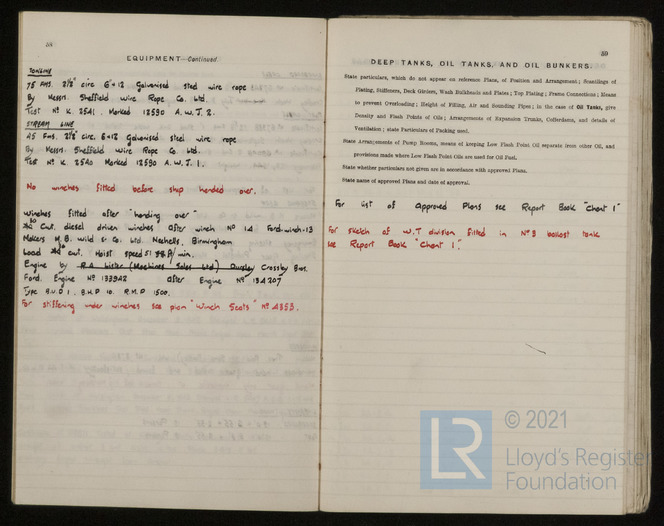 58
EQUIPMENT—Continued.
TOWLINE
75 Fms. 2½" circ 6×12 Galvanised steel wire rope
By Messrs. Sheffield Wire Rope Co. Ltd.
Test Nº K. 2541. Marked 12590 A.W.J. 2.
STREAM LINE
45 Fms. 2½" circ. 6×12 Galvanised steel wire rope
By Messrs. Sheffield Wire Rope Co. Ltd.
Nº K. 2540 Marked 12590 A.W.J. 1.
No winches fitted before ship handed over.
Winches fitted after "handing over"
30 Cwt. diesel driven winches After winch Nº 14 Ford. winch-13
Makers M.B. Wild & Co. Ltd. Nechells, Birmingham
Load cwt. Hoist speed 51 ft/min.
Engine by R.A. Lister (Machines Sales Ltd) Dursley Crossley Bros.
Ford. Engine Nº 133942 After Engine Nº 134207
Type B.V.D 1. B.H.P 10. R.P.M 1500.
For stiffening under winches see plan "Winch Seats" Nº A353.
59
DEEP TANKS, OIL TANKS, AND OIL BUNKERS.
State particulars, which do not appear on reference Plans, of Position and Arrangement; Scantlings of
Plating, Stiffeners, Deck Girders, Wash Bulkheads and Plates; Top Plating; Frame Connections; Means
to prevent Overloading; Height of Filling, Air and Sounding Pipes; in the case of Oil Tanks, give
Density and Flash Points of Oils; Arrangements of Expansion Trunks, Cofferdams, and details of
Ventilation; state Particulars of Packing used.
State Arrangements of Pump Rooms, means of keeping Low Flash Point Oil separate from other Oil, and
provisions made where Low Flash Point Oils are used for Oil Fuel.
State whether particulars not given are in accordance with approved Plans.
State name of approved Plans and date of approval.
For list of Approved Plans see Report Book "Chant 1"
For sketch of W.T division fitted in Nº 3 ballast tank
see Report Book "Chant 1."
LR
© 2021
Lloyd's Register
Foundation